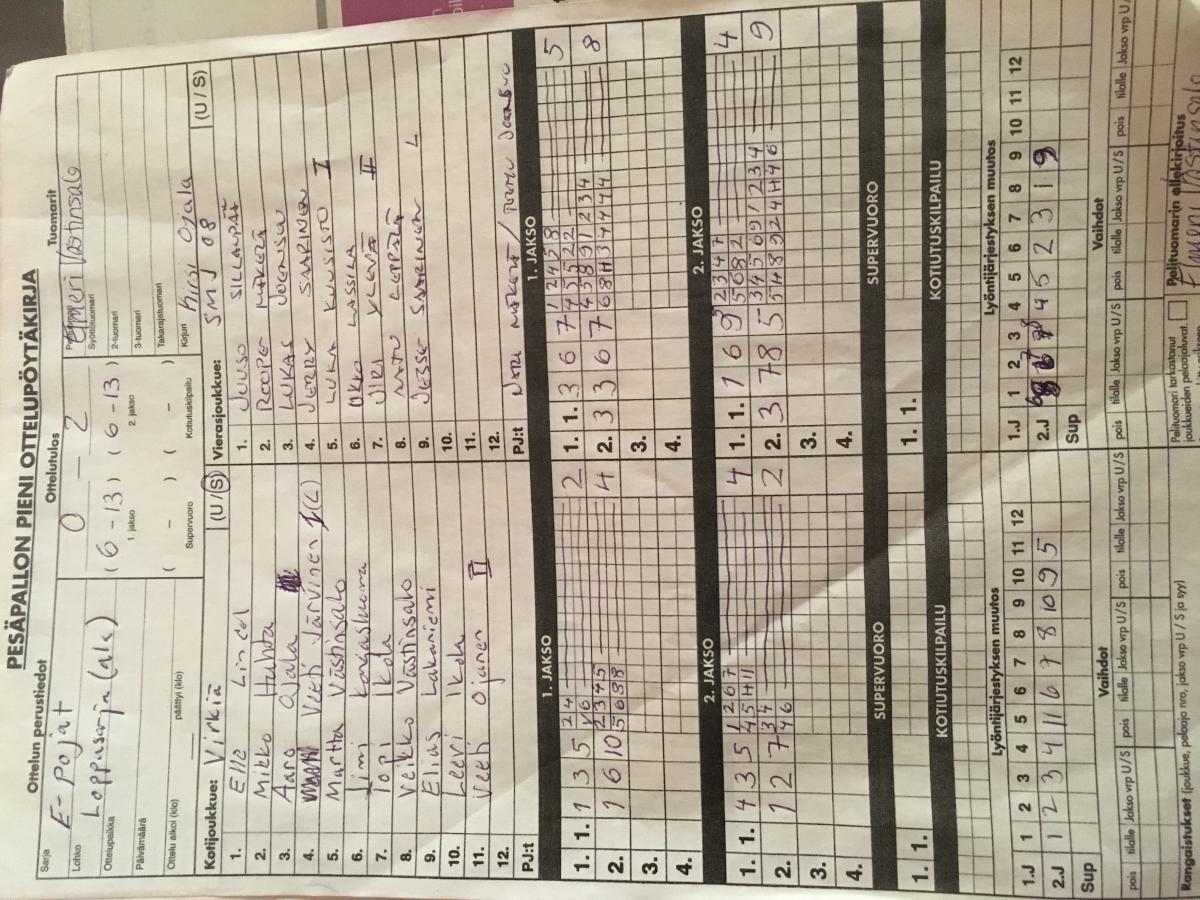 PESÄPALLON PIENI OTTELUPÖYTÄKIRJA
Ottelun perustiedot
Ottelutulos
Tuomarit
Sarja
E-Pojat
0 – 2
Pelituomari
Lohko
Loppusarja (ala)
Syöttötuomari
Ottelupaikka
(6 - 13) (6 - 13)
1. jakso 2. jakso
2-tuomari
Päivämäärä
3-tuomari
Ottelu alkoi (klo) päättyi (klo)
( – ) ( – )
Supervuoro Kotiutuskilpailu
Takarajatuomari
Kirjuri Kirsi Ojala
Kotijoukkue: Virkiä (U/S)
Vierasjoukkue: SMJ 08 (U/S)
1. Elle Lindel
2. Mikko Huhta
3. Aaro Ojala
4. Veeti Järvinen I (L)
5. Martta Västinsalo
6. Jimi Kangasluoma
7. Topi Ikola
8. Veikko Västinsalo
9. Elias Lakaniemi
10. Leevi Ikola
11. Veeti Ojanen II
12.
PJ:t
1. JUUSO SILLANPÄÄ
2. ROOPE MÄKELÄ
3. LUKAS JOENSUU
4. JOERY SAARINEN
5. LUKA KUUSISTO I
6. UKKO LASSILA
7. JIRI YLEVÄ II
8. MATU LEPPÄLÄ
9. JESSE SAARINEN L
10.
11.
12.
PJ:t
1. JAKSO
1. 1. 1 3 5 2
2 4
1 6
2. 1 6 10 4
2 3 4 5
5 6 8 8
3.
4.
1. JAKSO
1. 1. 3 6 7 5
1 2 4 5 8
4 5 5 2 2
2. 3 6 7 8
4 5 8 9 1 2 3 4
6 8 4 3 4 4 4 4
3.
4.
2. JAKSO
1. 1. 4 3 5 4
1 2 6 7
4 5 4 11
2. 1 2 7 2
3 4
4 6
3.
4.
2. JAKSO
1. 1. 1 6 9 4
2 3 4 7
5 6 8 2
2. 3 78 5 9
3 4 5 6 9 1 2 3 4
5 4 8 9 2 4 4 4 6
3.
4.
SUPERVUORO
1. 1.
SUPERVUORO
1. 1.
KOTIUTUSKILPAILU
KOTIUTUSKILPAILU
Lyöntijärjestyksen muutos
1.J 1 2 3 4 5 6 7 8 9 10 11 12
2.J 1 2 3 4 11 6 7 8 10 9 5
Sup
Lyöntijärjestyksen muutos
1.J 1 2 3 4 5 6 7 8 9 10 11 12
2.J 4 5 2 3 1 9
Sup
Vaihdot
pois tilalle Jakso vrp U/S pois tilalle Jakso vrp U/S pois tilalle Jakso vrp U/S
Vaihdot
pois tilalle Jakso vrp U/S pois tilalle Jakso vrp U/S pois tilalle Jakso vrp U/
Rangaistukset (joukkue, pelaaja nro, jakso vrp U / S ja syy)
Pelituomari tarkastanut
joukkueiden pelaajaluvat.
Pelituomarin allekirjoitus